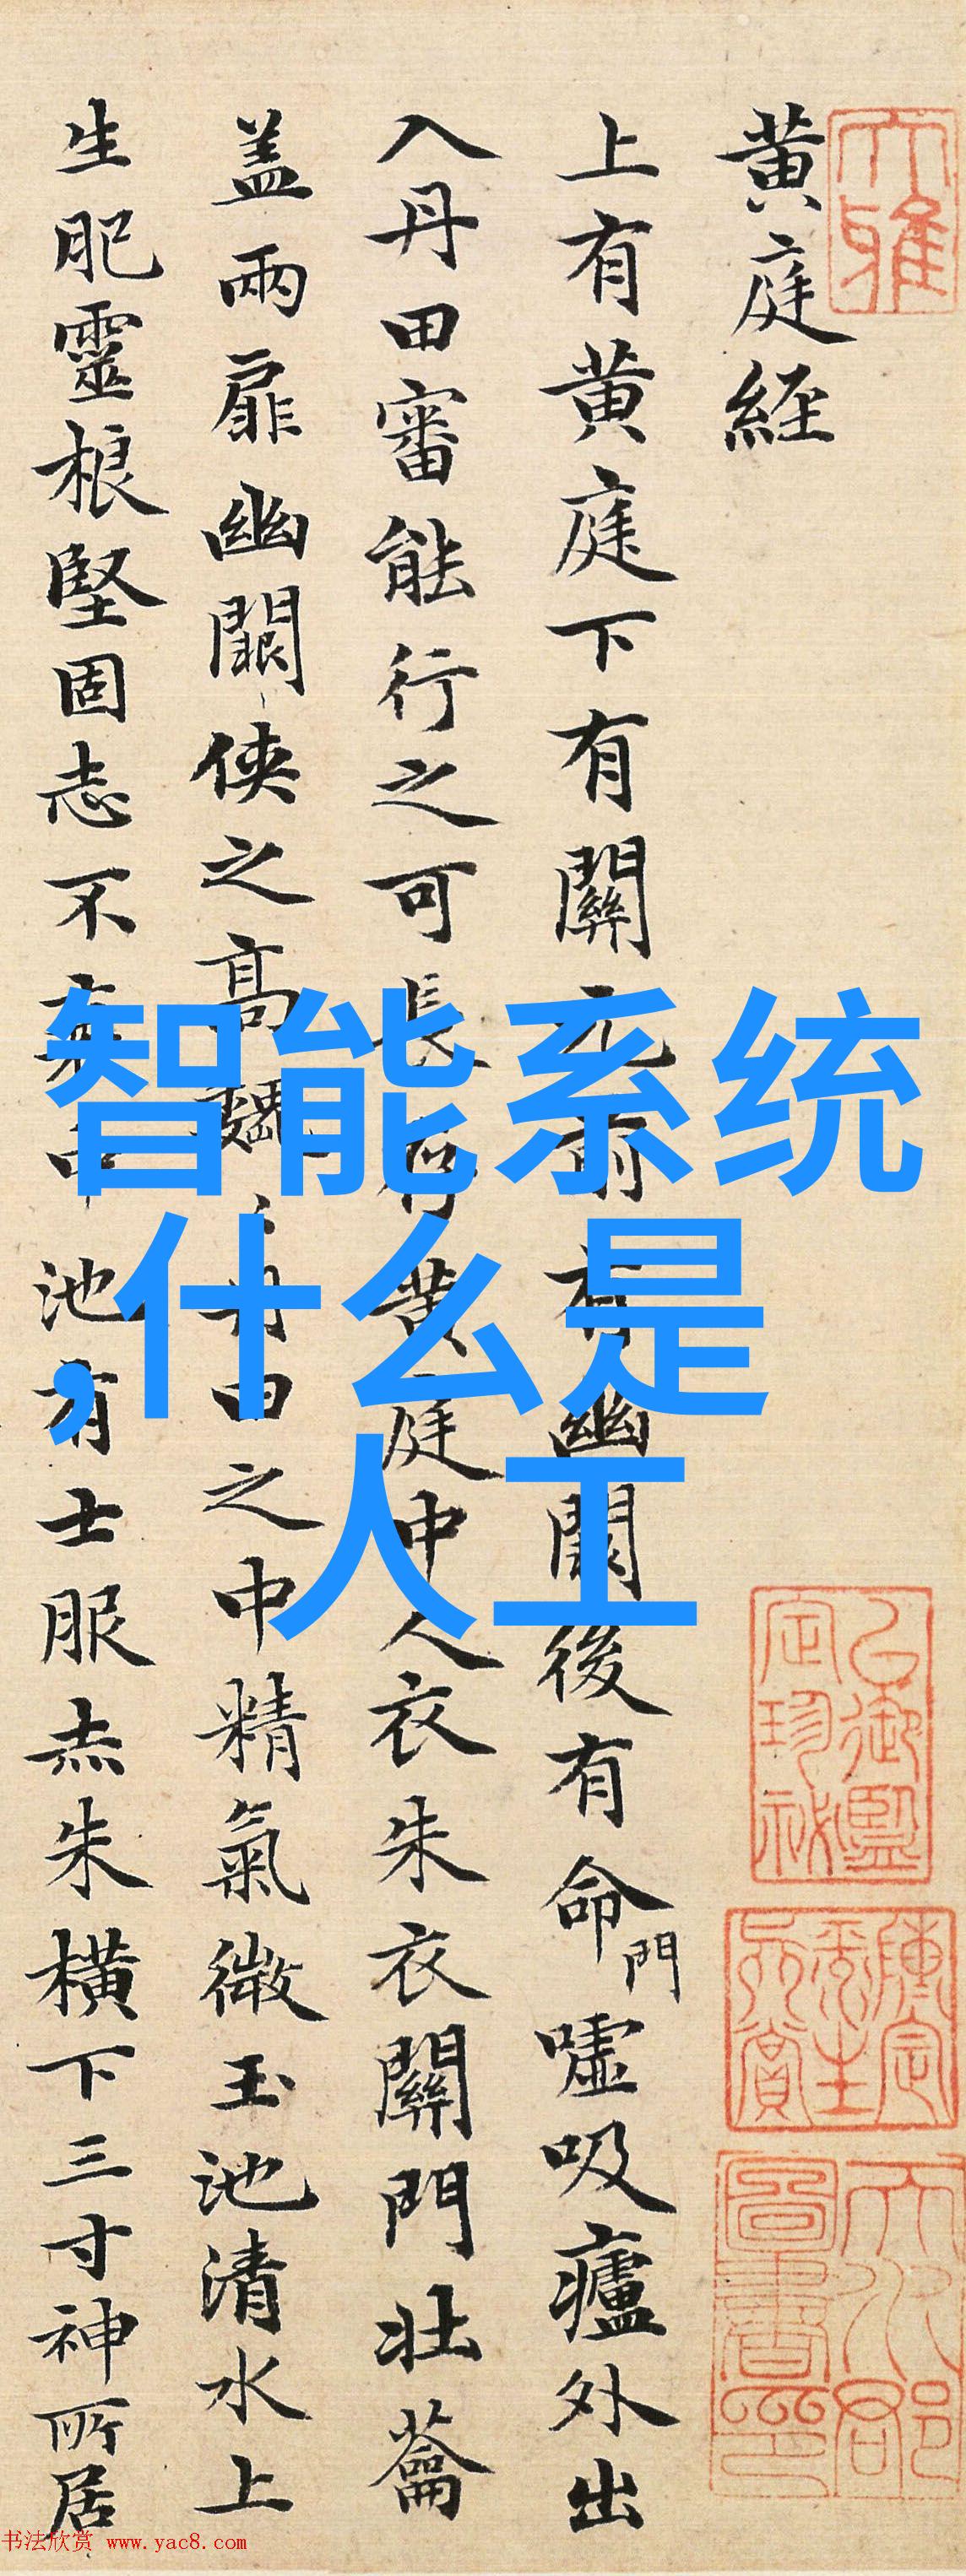 黄庭経
上有黄庭下有關元前有幽闕後有命門嘘吸廬外出
入丹田審能行之可長存黄庭中人衣朱衣關門壮蘥
盖兩扉幽闕侠之髙魏丹田之中精氣微玉池清水上
生肥靈根堅固志不衰中池有士服赤朱横下三寸神所居
智能系统
什么是
,人工
大雅
书法欣赏 www.yac8.com